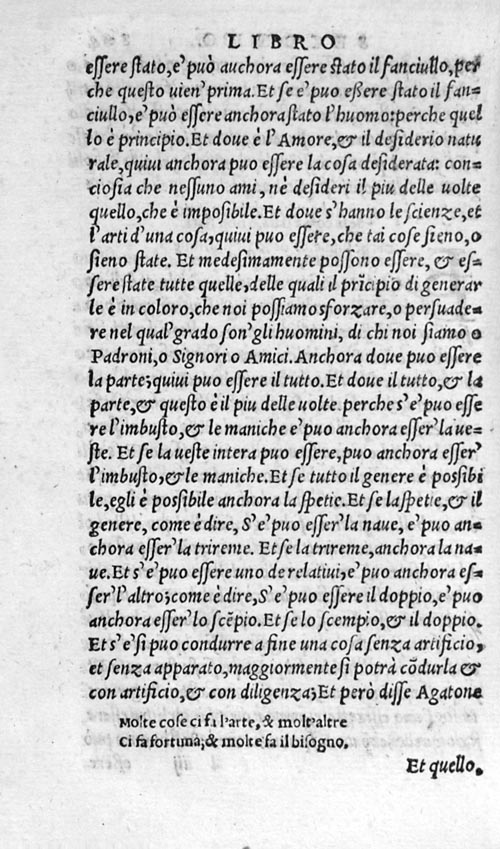 LIBRO
essere stato, e' può auchora essere stato il fanciullo, per
che questo uien' prima. Et se e' può essere stato il fan=
ciullo, e' può essere anchora stato l'huomo: perche quel
lo è principio. Et doue è l'Amore, & il desiderio natu
rale, quiui anchora puo essere la cosa desiderata: con=
ciosia che nessuno ami, nè desideri il piu delle uolte
quello, che è imposibile. Et doue s'hanno le scienze, et
l'arti d'una cosa, quiui puo essere, che tai cose sieno, o
sieno state. Et medesimamente possono essere, & es=
sere state tutte quelle, delle quali il prĩcipio di generar
le è in coloro, che noi possiamo sforzare, o persuade=
re nel qual' grado son' gli huomini, di chi noi siamo o
Padroni, o Signori o Amici. Anchora doue puo essere
la parte; quiui puo essere il tutto. Et doue il tutto, & la
parte, & questo è il piu delle uolte perche s'e' puo esse
re l'imbusto, & le maniche e' puo anchora esser' la ue=
ste. Et se la ueste intera puo essere, puo anchora esser'
l'imbusto, & le maniche. Et se tutto il genere è possibi
le, egli è possibile anchora la spetie. Et se la spetie, & il
genere, come è dire, S'e' puo esser' la naue, e' puo an=
chora esser' la trireme. Et se la trireme, anchora la na=
ue. Et s'e' puo essere uno de relatiui, e' puo anchora es=
ser' l'altro; come è dire, S'e' puo essere il doppio, e' puo
anchora esser' lo scẽpio. Et se lo scempio, & il doppio.
Et s'e' si può condurre a fine una cosa senza artificio,
et senza apparato, maggiormente si potrà cõdurla &
con artificio, & con diligenza; Et però disse Agatone
Molte cose ci fa l'arte, & molt'altre
Ci fa fortuna; & molte fa il bisogno.
Et quello.